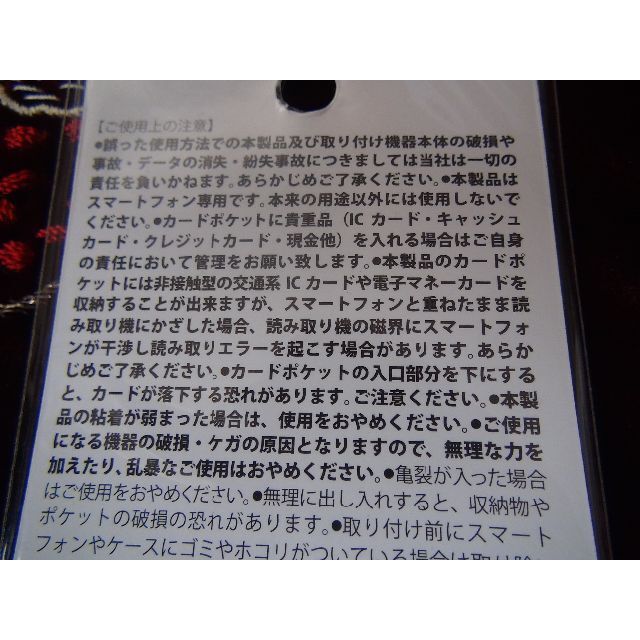 【ご使用上の注意】
●誤った使用方法での本製品及び取り付け機器本体の破損や
事故・データの消失・紛失事故につきましては当社は一切の
責任を負いかねます。あらかじめご了承ください。●本製品は
スマートフォン専用です。本来の用途以外には使用しないで
ください。●カードポケットに貴重品（IC カード・キャッシュ
カード・クレジットカード・現金他）を入れる場合はご自身
の責任において管理をお願い致します。●本製品のカードポ
ケットには非接触型の交通系 IC カードや電子マネーカードを
収納することが出来ますが、スマートフォンと重ねたまま読
み取り機にかざした場合、読み取り機の磁界にスマートフォ
ンが干渉し読み取りエラーを起こす場合があります。あらか
じめご了承ください。●カードポケットの入口部分を下にする
と、カードが落下する恐れがあります。ご注意ください。●本製
品の粘着が弱まった場合は、使用をおやめください。●ご使用
になる機器の破損・ケガの原因となりますので、無理な力を
加えたり、乱暴なご使用はおやめください。●亀裂が入った場合
はご使用をおやめください。●無理に出し入れすると、収納物や
ポケットの破損の恐れがあります。●取り付け前にスマート
フォンやケースにゴミやホコリがついている場合は取り除